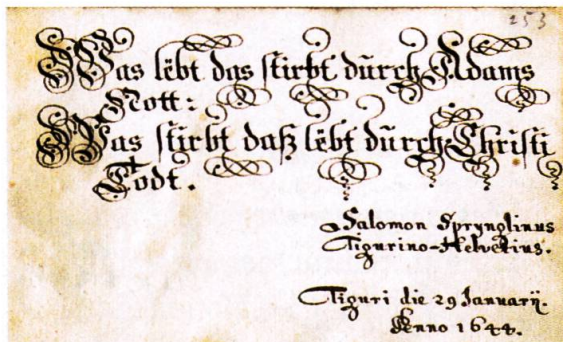 253
Was lebt das stirbt durch Adams
Nott:
Was stirbt daß lebt durch Christi
Todt.
Salomon Sprynglinus
Tigurino-Helvetius.
Tiguri die 29 Januarij.
Anno 1644.